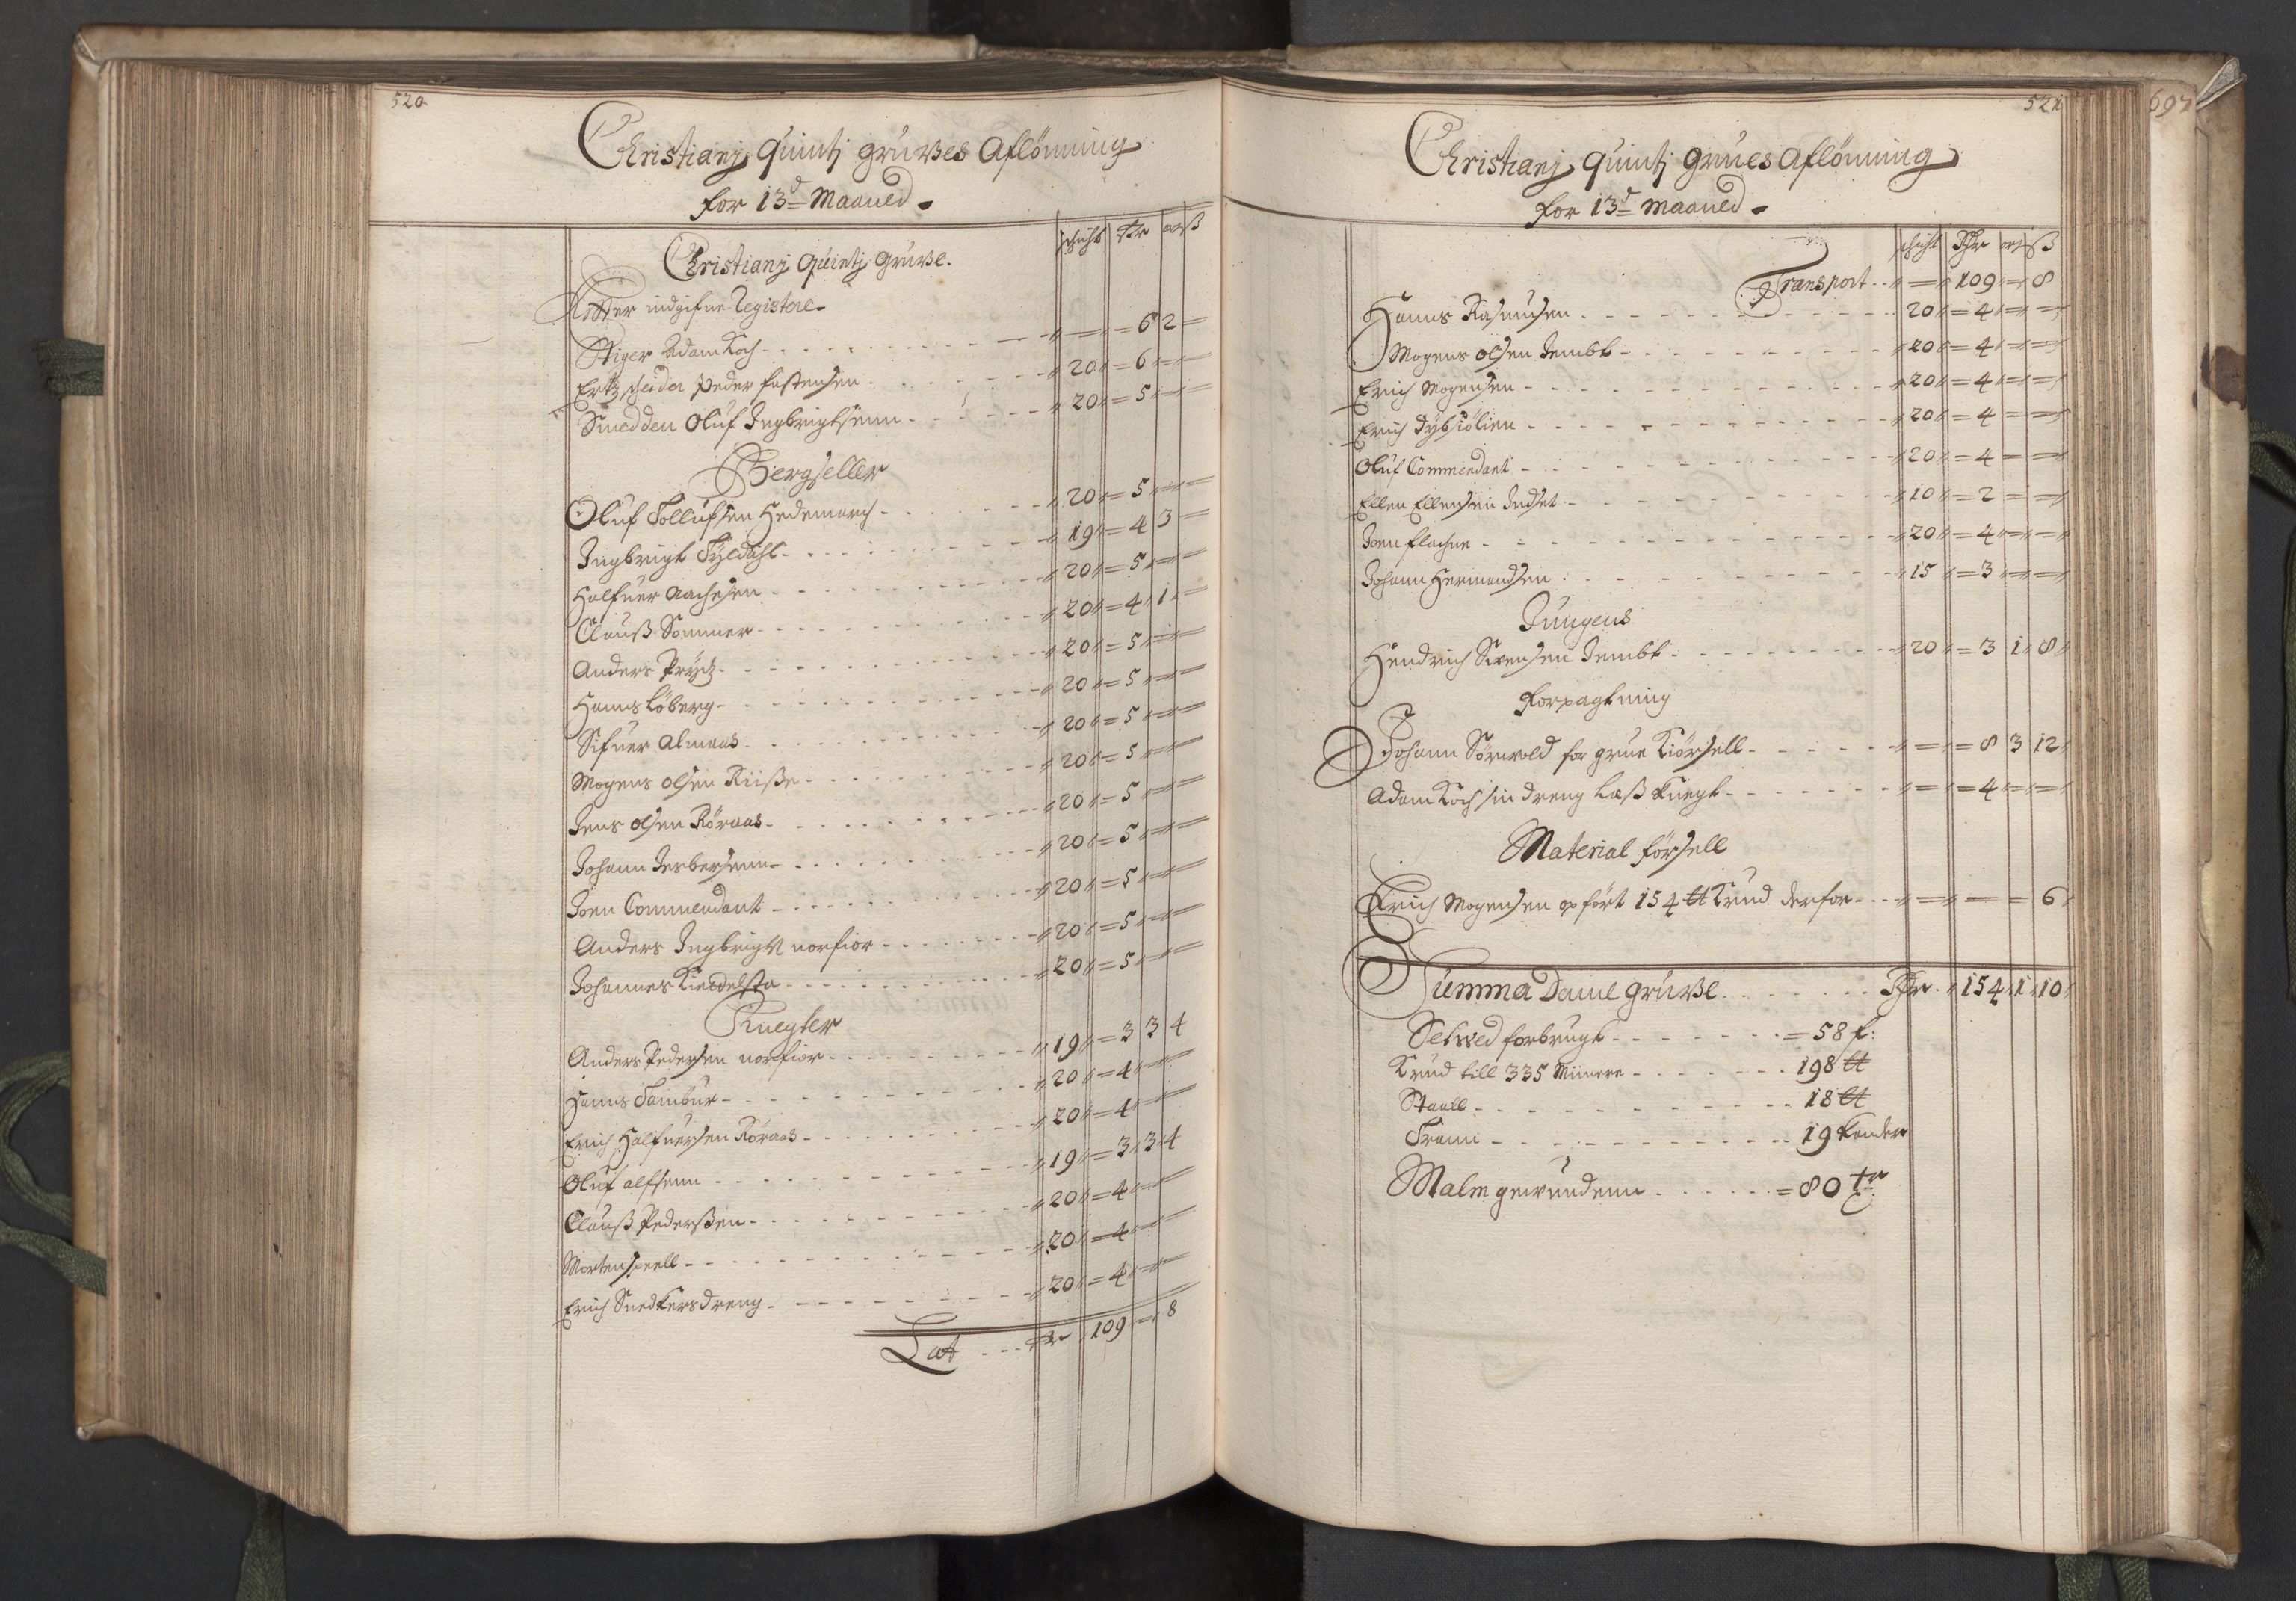 520
Christianj Quintj gruwes Aflönning
for 13d Maaned
schicht | tr | ort | ß
Christianj Quintj gruwe.
Effter indgifne Registere
Stiger Adam Koch - - - = 6 2 =
Ertzscheider Peder Fastensen - 20 = 6 = =
Smedden Oluf Ingbrigtsenn - 20 = 5 = =
Bergseller
Oluf Tollufsen Hedemarch - 20 = 5 = =
Ingbrigt Tyldahl - 19 = 4 3 =
Halfuer Aachesen - 20 = 5 = =
Clauß Sommer - 20 = 4 1 =
Anders Prytz - 20 = 5 = =
Hanns Löberg - 20 = 5 = =
Sifuer Almaas - 20 = 5 = =
Mogens Olsen Riiße - 20 = 5 = =
Jens Olsen Röraas - 20 = 5 = =
Johann Jesbersenn - 20 = 5 = =
Joen Commendant - 20 = 5 = =
Anders Ingbrigt norfior - 20 = 5 = =
Johannes Kieldelsta - 20 = 5 = =
Knegter
Anders Pedersen norfior - 19 = 3 3 4
Hanns Tambur - 20 = 4 = =
Erich Halfuersen Röraas - 20 = 4 = =
Oluf Alfsenn - 19 = 3 3 4
Clauß Pederßen - 20 = 4 = =
Morten speell - 20 = 4 = =
Erich Snedkers dreng - 20 = 4 = =
Lat - - - tr 109 = 8
521
697
Christianj Quintj grues Aflönning
for 13d Maaned
schicht | Thr | ort | ß
Transport - = 109 = 8
Hanns Rasmusen - 20 = 4 = =
Mogens Olsen Jembt - 20 = 4 = =
Erich Mogensen - 20 = 4 = =
Erich Dybsiölien - 20 = 4 = =
Oluf Commendant - 20 = 4 = =
Ellen Ellensen Indset - 10 = 2 = =
Joen flachne - 20 = 4 = =
Johann Hermandsen - 15 = 3 = =
Jungens
Hendrich Svensen Jembt - 20 = 3 1 8
Forpagtning
Johann Sörwold for grue Kiörsell - = = 8 3 12
Adam Koch sin dreng Læß knegt - = = 4 = =
Material försell
Erich Mogensen opfört 154 ℔ Krud derfor - = = = 6
Summa Denne gruwe - Thr 154 1 10
Setwed forbrugt - = 58 f:
Krud till 335 Minere - 198 ℔
Staall - 18 ℔
Trann - 19 kander
Malm gewundenn - = 80 tr